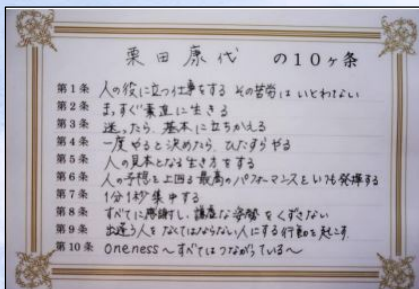 栗田康代 の10ヶ条
第1条 人の役に立つ仕事をする その苦労はいとわない
第2条 まっすぐ素直に生きる
第3条 迷ったら、基本に立ちかえる
第4条 一度やると決めたら、ひたすらやる
第5条 人の見本となる生き方をする
第6条 人の予想を上回る最高のパフォーマンスをいつも発揮する
第7条 1分1秒集中する
第8条 すべてに感謝し、謙虚な姿勢をくずさない
第9条 出逢う人をなくてはならない人にする行動を起こす
第10条 oneness～すべてはつながっている～